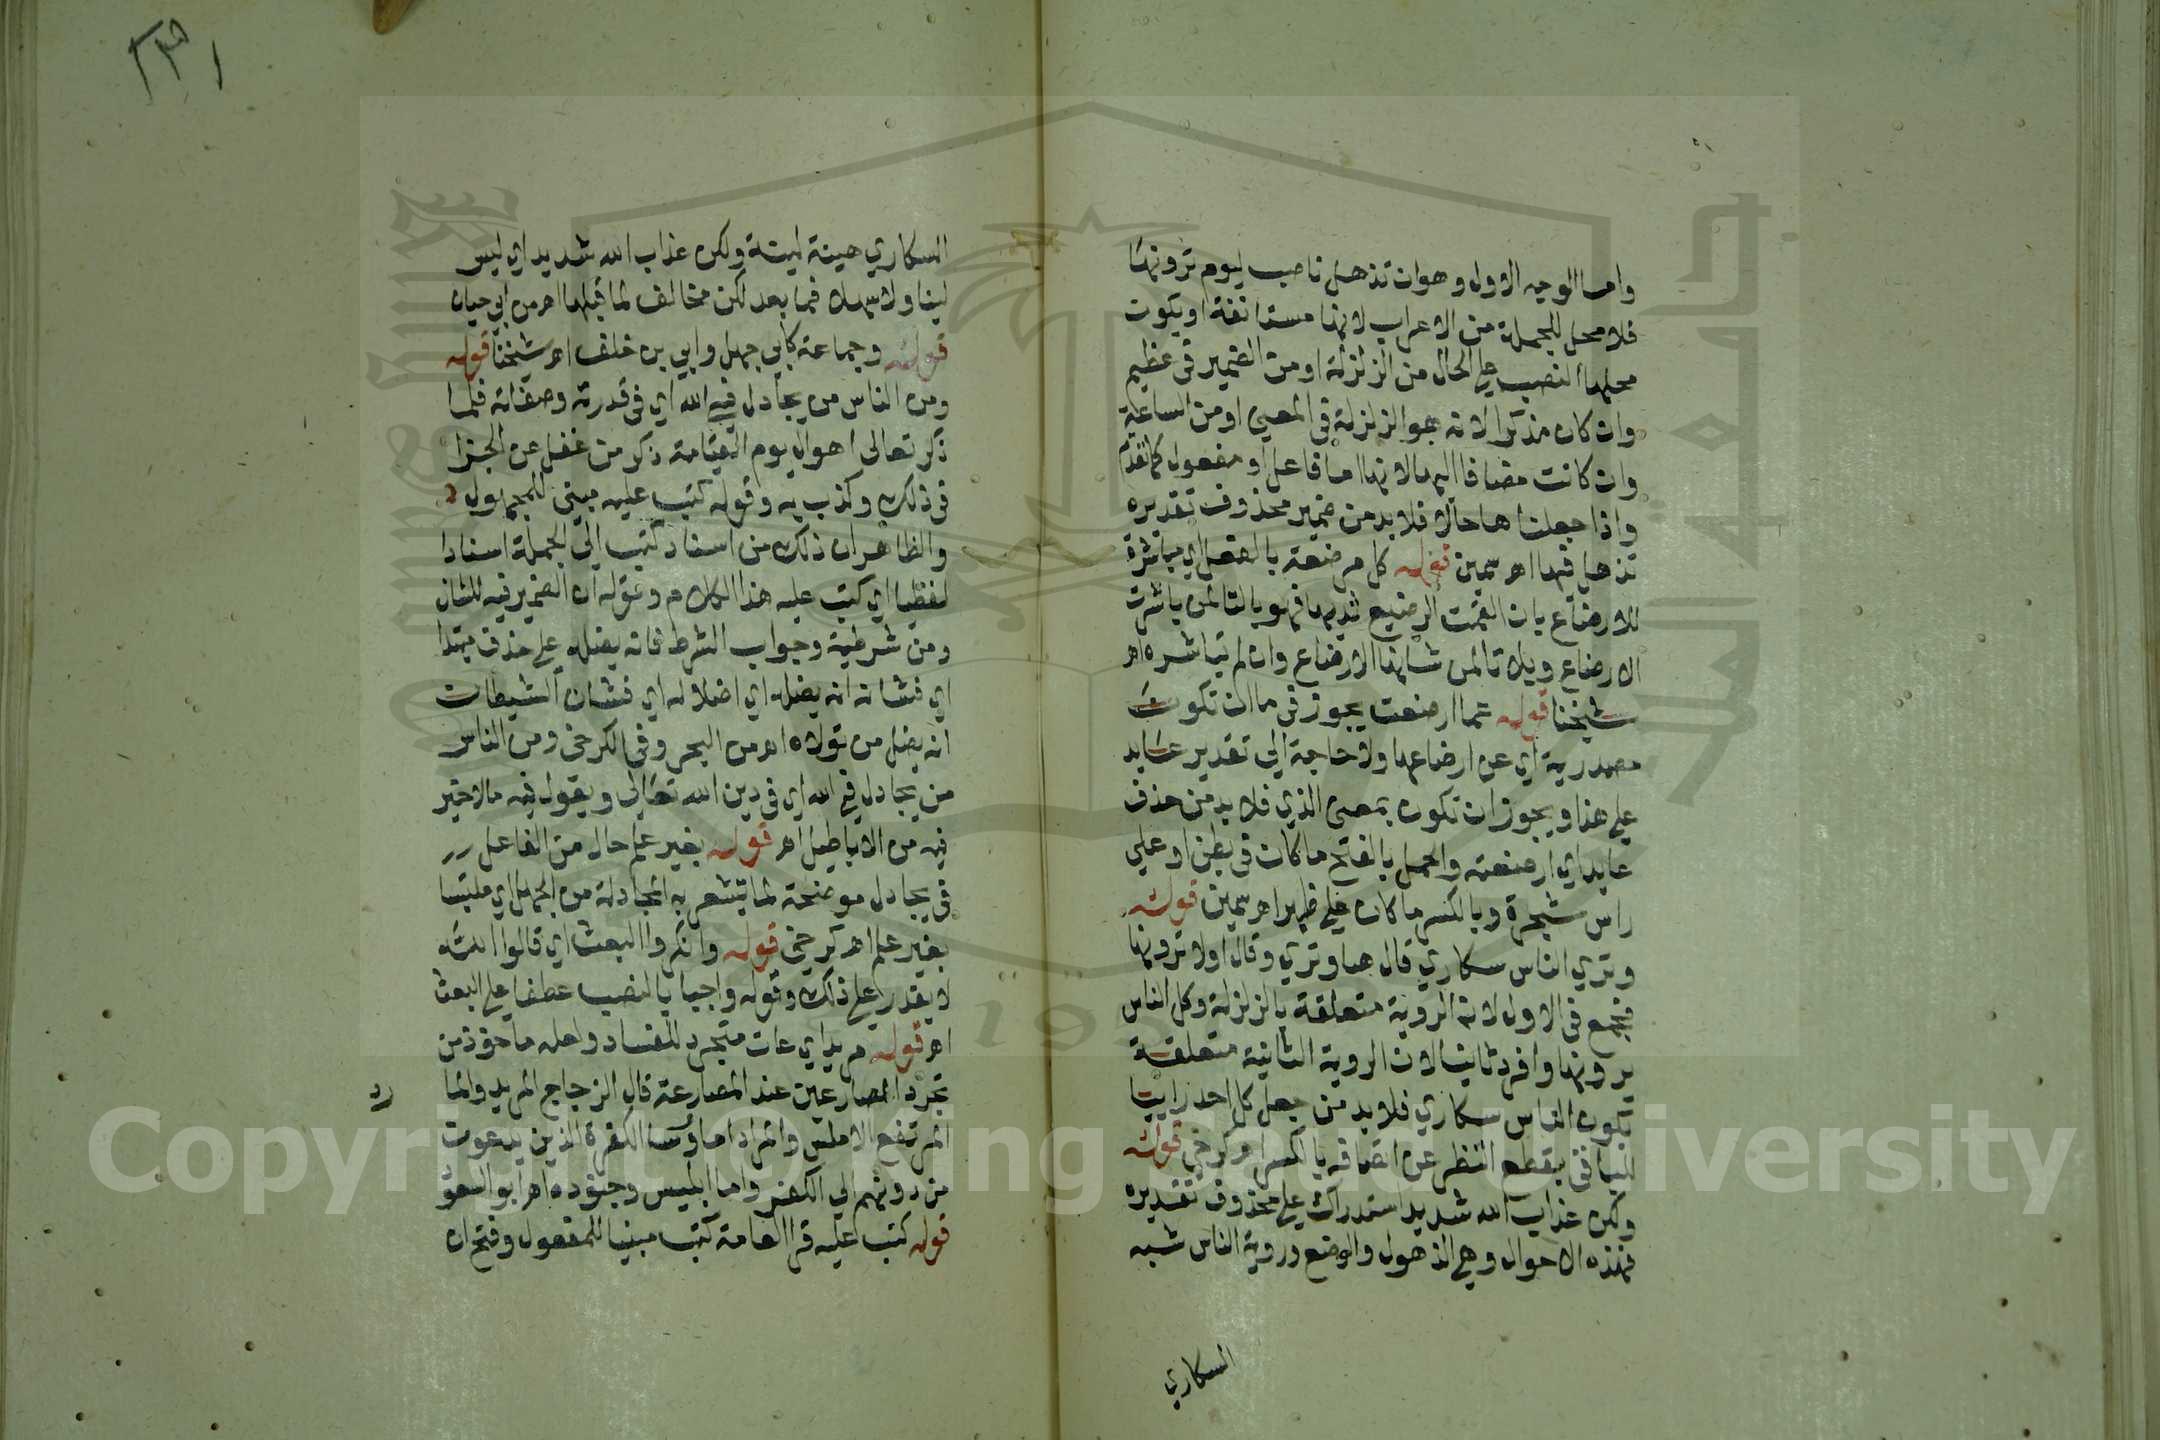 واما الوجه الاول وهوان تذهل ناصب ليوم ترونها
فلا محل للجملة من الاعراب لانها مستانفة او يكون
محلها النصب على الحال من الزلزلة او من الضمير في عظيم
وان كان مذكرا لانه هو الزلزلة في المعنى او من الساعة
وان كانت مضافا اليها لانها اما فاعل او مفعول كما تقدم
واذا جعلناها حالا فلا بد من ضمير محذوف تقديره
تذهل فيها اهـ سمين قوله كل مرضعة بالفعل اي مباشرة
للارضاع بان القمت الرضيع ثديها فهو بالتا لمن باشرت
الارضاع وبلا تا لمن شانها الارضاع وان لم تباشره اهـ
شيخنا قوله عما ارضعت يجوز في ما ان تكون
مصدرية اي عن ارضاعها ولا حاجة الى تقدير عايد
على هذا ويجوز ان تكون بمعنى الذي فلا بد من حذف
عايد اي ارضعته والحمل بالفتح ما كان في بطن او على
راس شجرة وبالكسر ما كان على ظهر اهـ سمين قوله
وترى الناس سكارى قال هنا وترى وقال اولا ترونها
فجمع في الاول لان الروية متعلقة بالزلزلة وكل الناس
يرونها وافرد ثانيا لان الروية الثانية متعلقة
بكون الناس سكارى فلا بد من جعل كل احد راييا
للباقي بقطع النظر عن اتصافه بالسكر اهـ كرخي قوله
ولكن عذاب الله شديد استدراك على محذوف تقديره
فهذه الاحوال وهي الذهول والوضع وروية الناس شبه
السكاري
١٣٣١
السكاري هينة لينة ولكن عذاب الله شديد اي ليس
لينا ولا سهلا فما بعد لكن مخالف لما قبلها اهـ من ابي حيان
قوله وجماعة كابي جهل وابي بن خلف اهـ شيخنا قوله
ومن الناس من يجادل في الله اي في قدرته وصفاته فلما
ذكر تعالى اهوال يوم القيامة ذكر من غفل عن الجزا
في ذلك وكذب به وقوله كتب عليه مبني للمجهول
والظاهر ان ذلك من اسناد كتب الى الجملة اسنادا
لفظيا اي كتب عليه هذا الكلام وقوله انه الضمير فيه للشان
ومن شرطية وجواب الشرط فانه يضله على حذف مبتدا
اي فشانه انه يضله اي اضلاله اي فشان الشيطان
انه يضل من تولاه اهـ من البحر وفي الكرخي ومن الناس
من يجادل في الله اي في دين الله تعالى ويقول فيه ما لا خير
فيه من الاباطيل اهـ قوله بغير علم حال من الفاعل
في يجادل موضحة لما تشعر به المجادلة من الجهل اي ملتبسا
بغير علم اهـ كرخي قوله وانكروا البعث اي قالوا الله
لا يقدر على ذلك وقوله واحيا بالنصب عطفا على البعث
اهـ قوله مريد اي عات متجرد للفساد ولعله ماخوذ من
تجرد المصارعين عند المصارعة قال الزجاج المريد والمارد
المرتفع الاملس والمراد اما رؤسا الكفرة الذين يدعون
من دونهم الى الكفر واما ابليس وجنوده اهـ ابو السعود
قوله كتب عليه قرا العامة كتب مبنيا للمفعول وفتح ان
Copyright © King Saud University